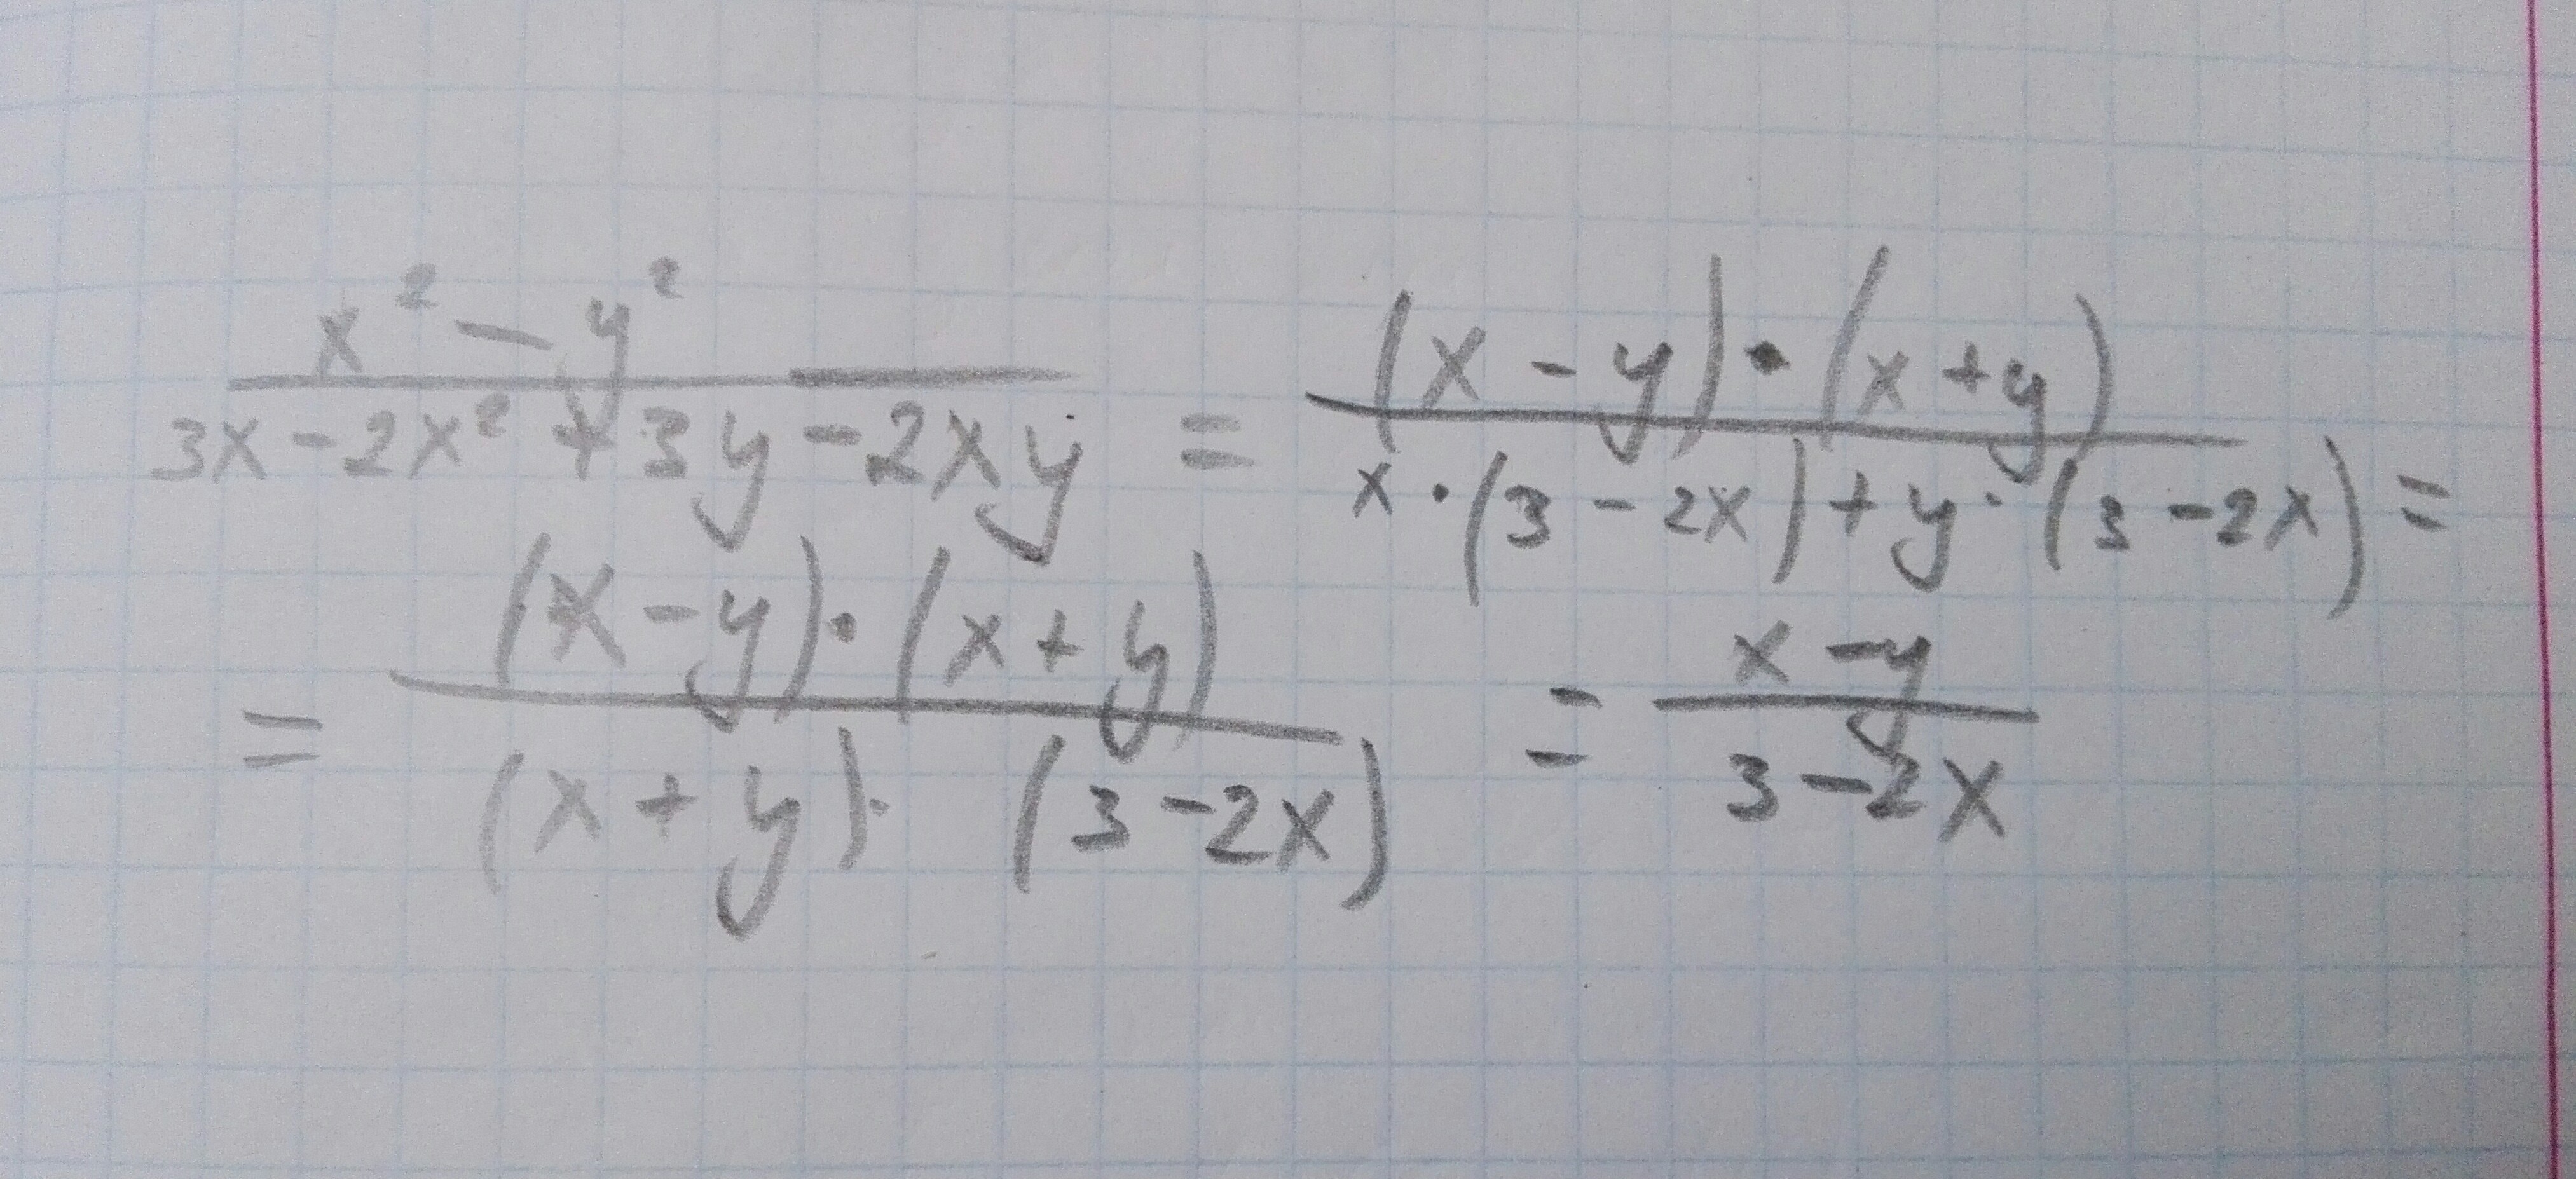 (x² - y²)/(3x - 2x² + 3y - 2xy) = ((x - y) · (x + y))/(x · (3 - 2x) + y · (3 - 2x)) =
= ((x - y) · (x + y))/((x + y) · (3 - 2x)) = (x - y)/(3 - 2x)